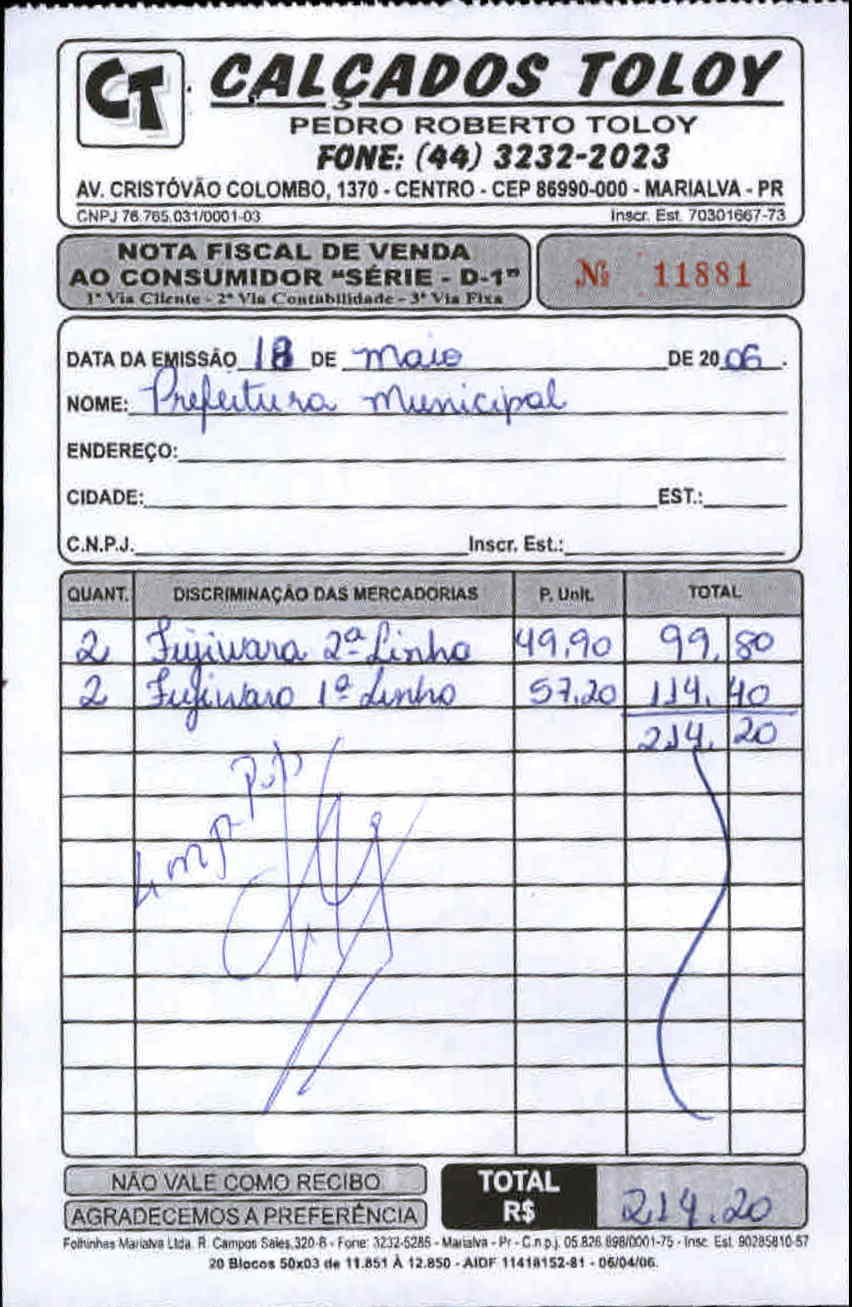 CT CALÇADOS TOLOY
PEDRO ROBERTO TOLOY
FONE: (44) 3232-2023
AV. CRISTÓVÃO COLOMBO, 1370 - CENTRO - CEP 86990-000 - MARIALVA - PR
CNPJ 76.765.031/0001-03 Inscr. Est. 70301667-73
NOTA FISCAL DE VENDA
AO CONSUMIDOR "SÉRIE - D-1"
1ª Via Cliente - 2ª Via Contabilidade - 3ª Via Fixa
Nº 11881
DATA DA EMISSÃO 18 DE maio DE 20 06.
NOME: Prefeitura Municipal
ENDEREÇO:
CIDADE: EST.:
C.N.P.J. Inscr. Est.:
QUANT. DISCRIMINAÇÃO DAS MERCADORIAS P. Unit. TOTAL
2 Fujiwara 2ª Linha 49,90 99,80
2 Fujiwara 1ª Linha 57,20 114,40
214,20
NÃO VALE COMO RECIBO
AGRADECEMOS A PREFERÊNCIA
TOTAL R$ 214,20
Folhinhas Marialva Ltda. R. Campos Sales, 320-B - Fone: 3232-5285 - Marialva - Pr - C.n.p.j. 05.826.898/0001-75 - Insc. Est. 90285810-57
20 Blocos 50x03 de 11.851 À 12.850 - AIDF 11418152-81 - 06/04/06.